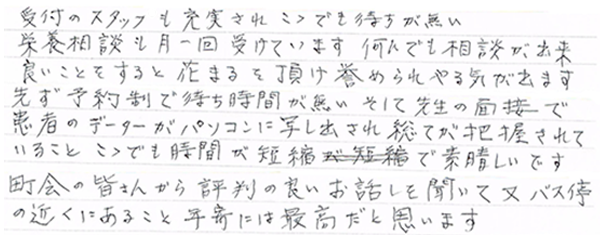 受付のスタッフも充実されここでも待ちが無い
栄養相談も月一回受けています 何んでも相談が出来
良いことをすると花まるを頂け誉められやる気が出ます
先ず予約制で待ち時間が無い そして先生の面接で
患者のデーターがパソコンに写し出され総てが把握されて
いること ここでも時間が短縮が短縮で素晴しいです
町会の皆さんから評判の良いお話しを聞いて又バス停
の近くにあること 年寄には最高だと思います